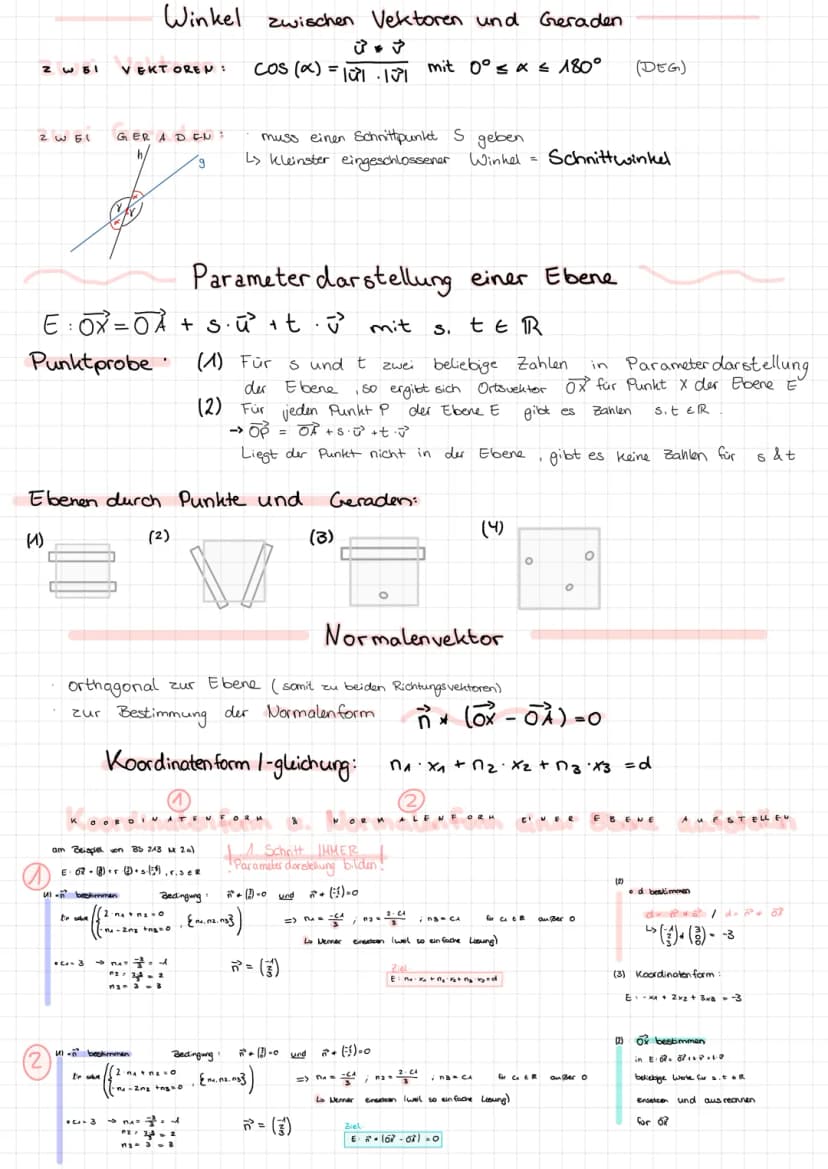 Winkel zwischen Vektoren und Geraden
ZWEI VEKTOREN: cos(α) = u⃗ * v⃗ / |u⃗| · |v⃗| mit 0° ≤ α ≤ 180° (DEG)
ZWEI GERADEN: muss einen Schnittpunkt S geben
↳ kleinster eingeschlossener Winkel = Schnittwinkel
h g
γ α γ α
Parameterdarstellung einer Ebene
E : OX⃗ = OA⃗ + s · u⃗ + t · v⃗ mit s, t ∈ ℝ
Punktprobe: (1) Für s und t zwei beliebige Zahlen in Parameterdarstellung
der Ebene, so ergibt sich Ortsvektor OX⃗ für Punkt X der Ebene E
(2) Für jeden Punkt P der Ebene E gibt es Zahlen s, t ∈ ℝ.
→ OP⃗ = OA⃗ + s · u⃗ + t · v⃗
Liegt der Punkt nicht in der Ebene, gibt es keine Zahlen für s & t
Ebenen durch Punkte und Geraden:
(1) (2) (3) (4)
Normalenvektor
· orthagonal zur Ebene (somit zu beiden Richtungsvektoren)
· zur Bestimmung der Normalenform n⃗ * (OX⃗ - OA⃗) = 0
Koordinatenform/-gleichung: n₁ · x₁ + n₂ · x₂ + n₃ · x₃ = d
① ②
KOORDINATENFORM & NORMALENFORM EINER EBENE AUFSTELLEN
! 1. Schritt IMMER
Parameterdarstellung bilden!
①
(1) · n⃗ bestimmen Bedingung:
{ 2·n₁ + n₂ = 0
-n₁ - 2n₂ + n₃ = 0 , {n₁, n₂, n₃}
=> n₁ = -C₁/3 ; n₂ = 2·C₁/3 ; n₃ = C₁ für C₁ ∈ ℝ außer 0
↳ Nenner einsetzen (weil so einfache Lösung)
· C₁ = 3 → n₁ = -3/3 = -1
n₂ = 2·3/3 = 2
n₃ = 3 = 3
Ziel
E: n₁ · x₁ + n₂ · x₂ + n₃ · x₃ = d
(2)
· d bestimmen
(3) Koordinatenform:
E: -x₁ + 2x₂ + 3x₃ = -3
②
(1) · n⃗ bestimmen Bedingung:
{ 2·n₁ + n₂ = 0
-n₁ - 2n₂ + n₃ = 0 , {n₁, n₂, n₃}
=> n₁ = -C₁/3 ; n₂ = 2·C₁/3 ; n₃ = C₁ für C₁ ∈ ℝ außer 0
↳ Nenner einsetzen (weil so einfache Lösung)
· C₁ = 3 → n₁ = -3/3 = -1
n₂ = 2·3/3 = 2
n₃ = 3 = 3
Ziel
(2) OX⃗ bestimmen
beliebige Werte für s, t ∈ ℝ
einsetzen und ausrechnen
für OX⃗